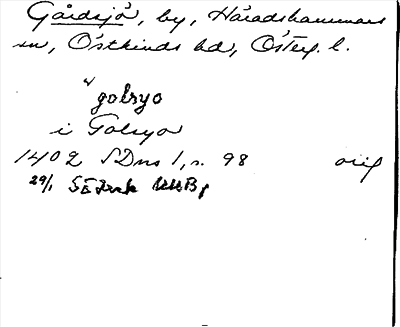 Gårdsjö, by, Häradshammars
sn, Östkinds hd, Österg. l.
golsyo
i Golsyo
1402 SDns 1, s. 98 orig
29/1